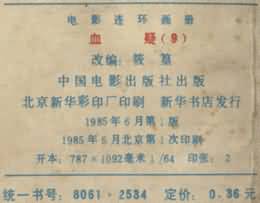 电影连环画册
血 疑(9)
改编:筱篁
中国电影出版社出版
北京新华彩印厂印刷 新华书店发行
1985年6月第1版
1985年6月北京第1次印刷
开本:787×1092毫米1/64 印张:2
统一书号:8061·2534 定价:0.36元